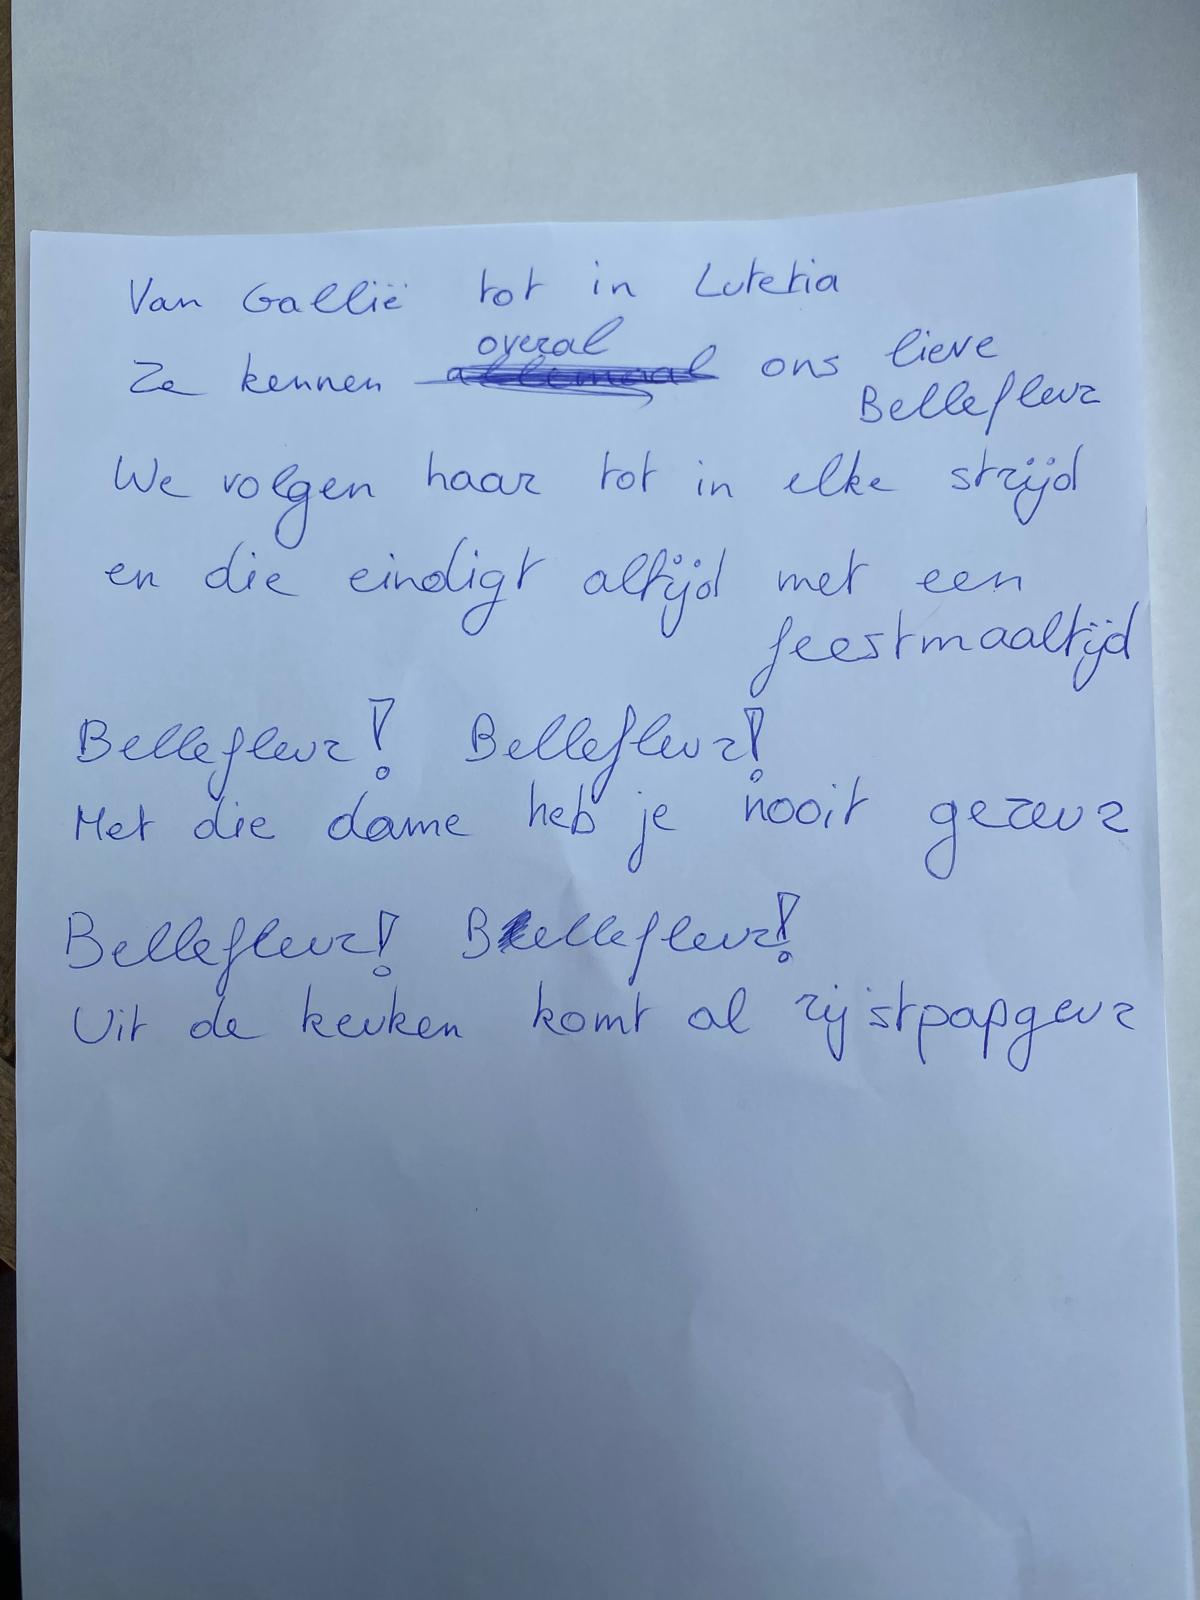 Van Gallië tot in Lutetia
Ze kennen overal ons lieve
Bellefleur
We volgen haar tot in elke strijd
en die eindigt altijd met een
feestmaaltijd
Bellefleur! Bellefleur!
Met die dame heb je nooit gezeur
Bellefleur! Bellefleur!
Uit de keuken komt al rijstpapgeur